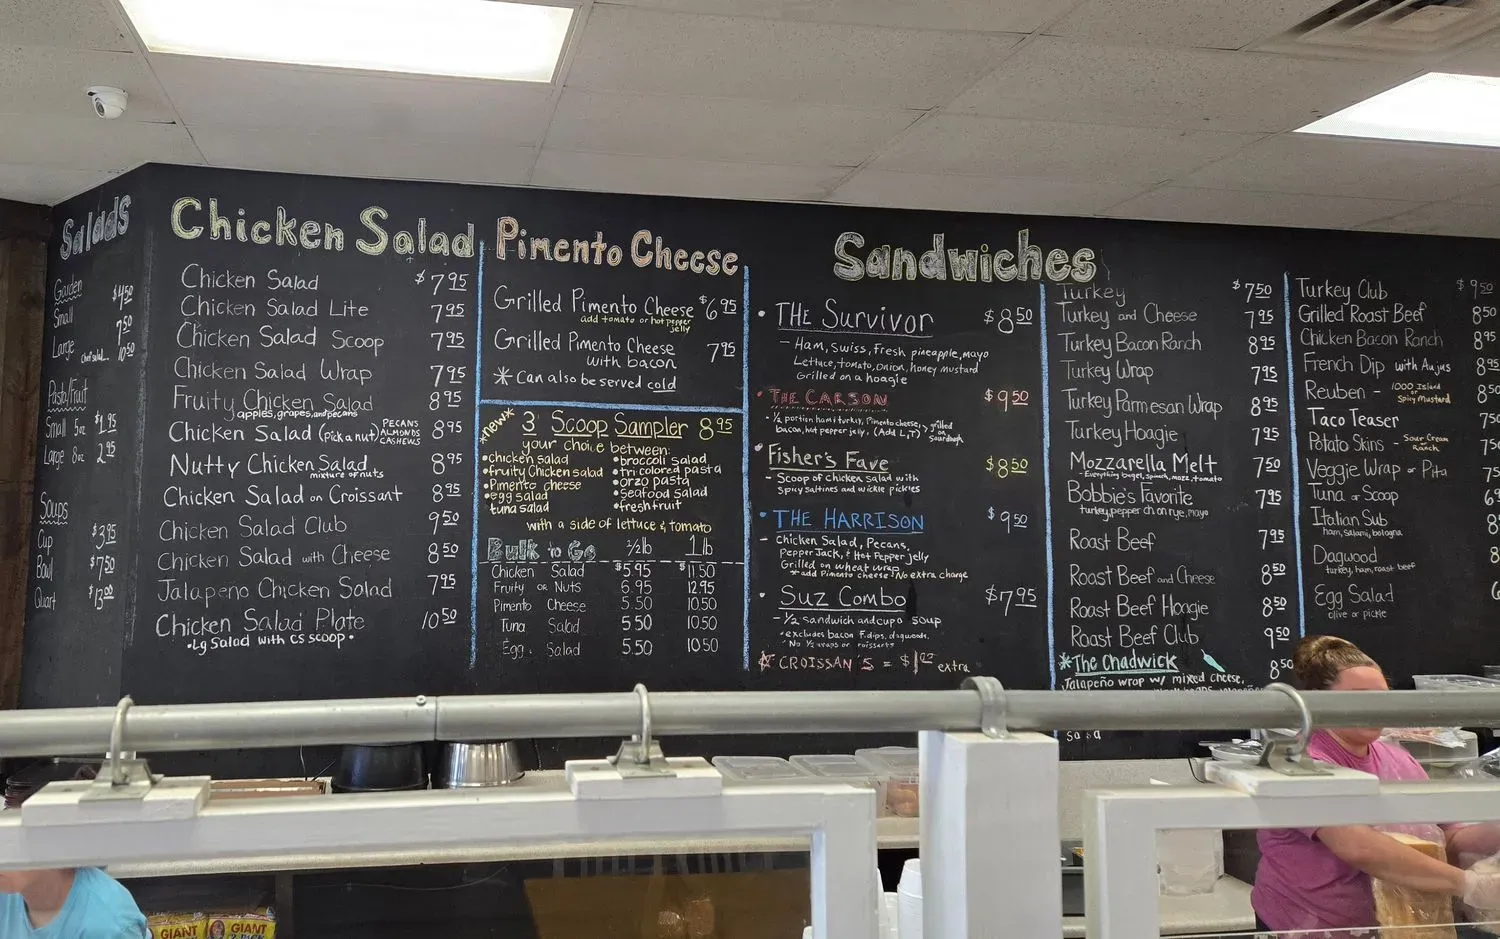 Salads
Garden
Small $4.50
7.50
Large chef salad... 10.50
Pasta/Fruit
Small 5oz $1.95
Large 8oz 2.95
Soups
Cup $3.95
Bowl $7.50
Quart $13.00
Chicken Salad
Chicken Salad $7.95
Chicken Salad Lite 7.95
Chicken Salad Scoop 7.95
Chicken Salad Wrap 7.95
Fruity Chicken Salad 8.95
apples, grapes, and pecans
Chicken Salad (pick a nut) PECANS ALMONDS CASHEWS 8.95
Nutty Chicken Salad 8.95
mixture of nuts
Chicken Salad on Croissant 8.95
Chicken Salad Club 9.50
Chicken Salad with Cheese 8.50
Jalapeno Chicken Salad 7.95
Chicken Salad Plate 10.50
•Lg Salad with CS Scoop•
Pimento Cheese
Grilled Pimento Cheese $6.95
add tomato or hot pepper jelly
Grilled Pimento Cheese
with bacon 7.95
* Can also be served cold
*new*
3 Scoop Sampler 8.95
your choice between:
•chicken salad •broccoli salad
•fruity Chicken salad •tri colored pasta
•Pimento cheese •orzo pasta
•egg salad •Seafood Salad
tuna salad •fresh fruit
with a side of lettuce & tomato
Bulk to Go ½ lb 1 lb
Chicken Salad $5.95 $11.50
Fruity or Nuts 6.95 12.95
Pimento Cheese 5.50 10.50
Tuna Salad 5.50 10.50
Egg Salad 5.50 10.50
Sandwiches
• THE Survivor $8.50
- Ham, Swiss, fresh pineapple, mayo
Lettuce, tomato, onion, honey mustard
Grilled on a hoagie
• THE CARSON $9.50
• ½ portion ham & turkey, Pimento cheese, grilled on sourdough
bacon, hot pepper jelly, (Add L,T)
• Fisher's Fave $8.50
- Scoop of chicken salad with
spicy saltines and wickle pickles
• THE HARRISON $9.50
- Chicken Salad, Pecans,
Pepper Jack, & Hot Pepper jelly
Grilled on wheat wrap
*add Pimento cheese! No extra charge
• Suz Combo $7.95
- ½ sandwich and cup soup
•excludes bacon F.dips, dagwoods,
No ½ wraps or croissants
* CROISSAN 'S = $1.25 extra
Turkey $7.50
Turkey and Cheese 7.95
Turkey Bacon Ranch 8.95
Turkey Wrap 7.95
Turkey Parmesan Wrap 8.95
Turkey Hoagie 7.95
Mozzarella Melt 7.50
-Everything bagel, spinach, mozz, tomato
Bobbie's Favorite 7.95
turkey, pepper ch on rye, mayo
Roast Beef 7.95
Roast Beef and Cheese 8.50
Roast Beef Hoagie 8.50
Roast Beef Club 9.50
*The Chadwick 8.50
Jalapeño wrap w/ mixed cheese,
salsa
Turkey Club $9.50
Grilled Roast Beef 8.50
Chicken Bacon Ranch 8.95
French Dip with Aujus
Reuben - 1000 Island or Spicy Mustard
Taco Teaser
Potato Skins - Sour Cream Ranch
Veggie Wrap or Pita
Tuna or Scoop
Italian Sub
ham, salami, bologna
Dagwood
turkey, ham, roast beef
Egg Salad
olive or pickle
GIANT
GIANT